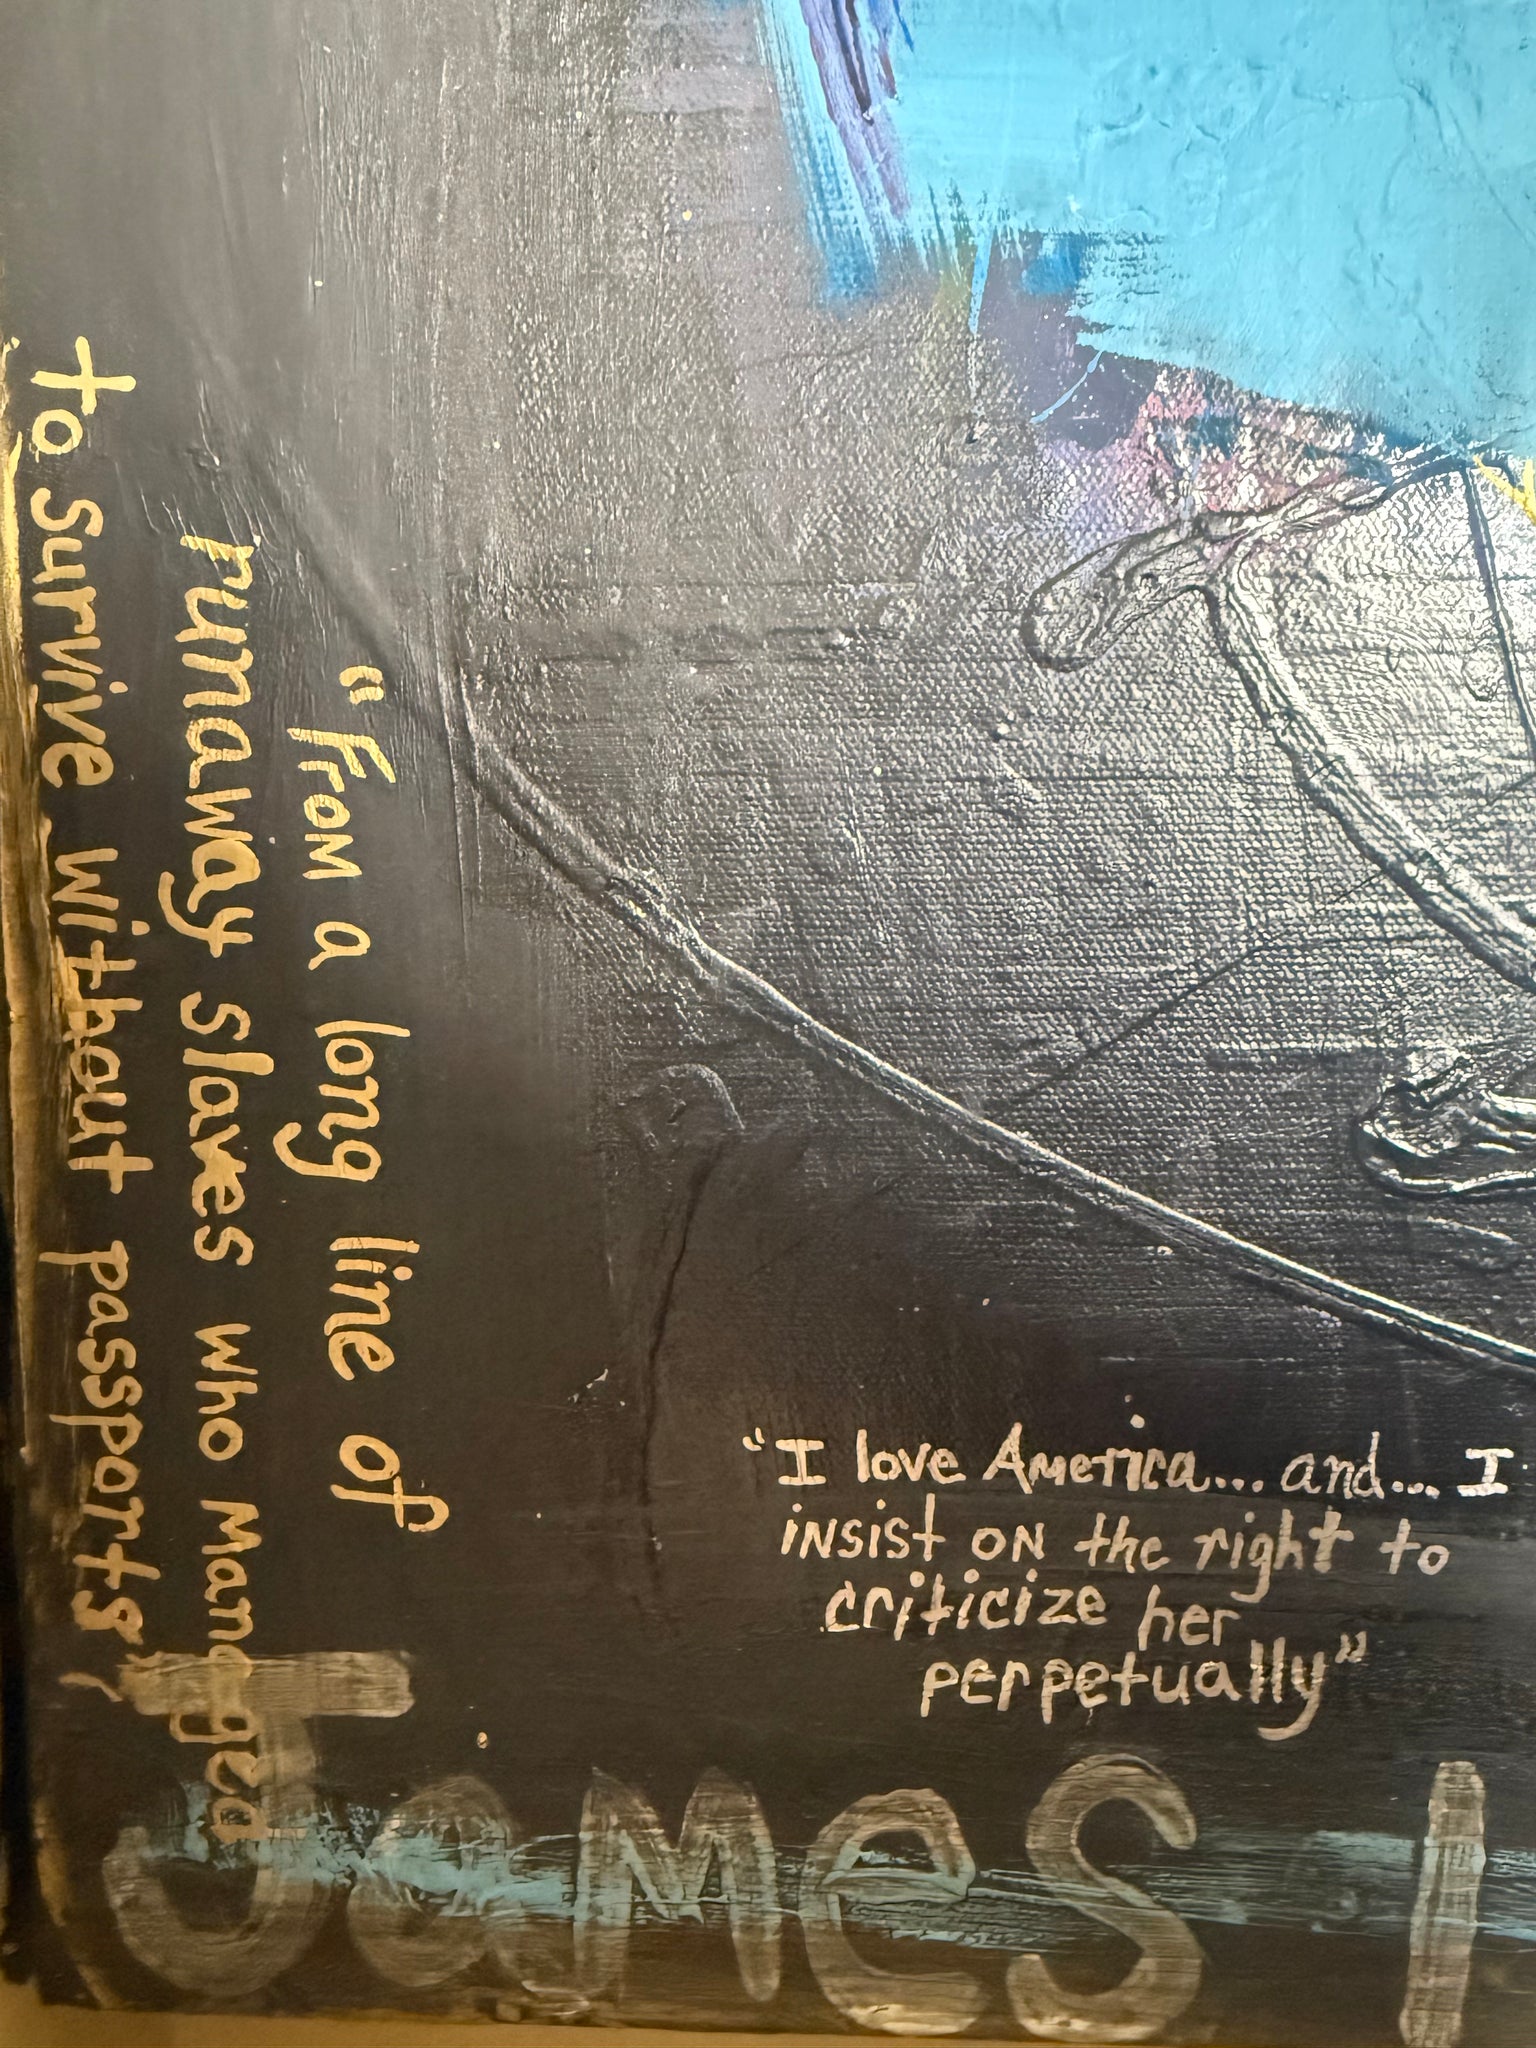 "From a long line of
runaway slaves who managed
to survive without passports"
"I love America... and... I
insist on the right to
criticize her
perpetually"
James